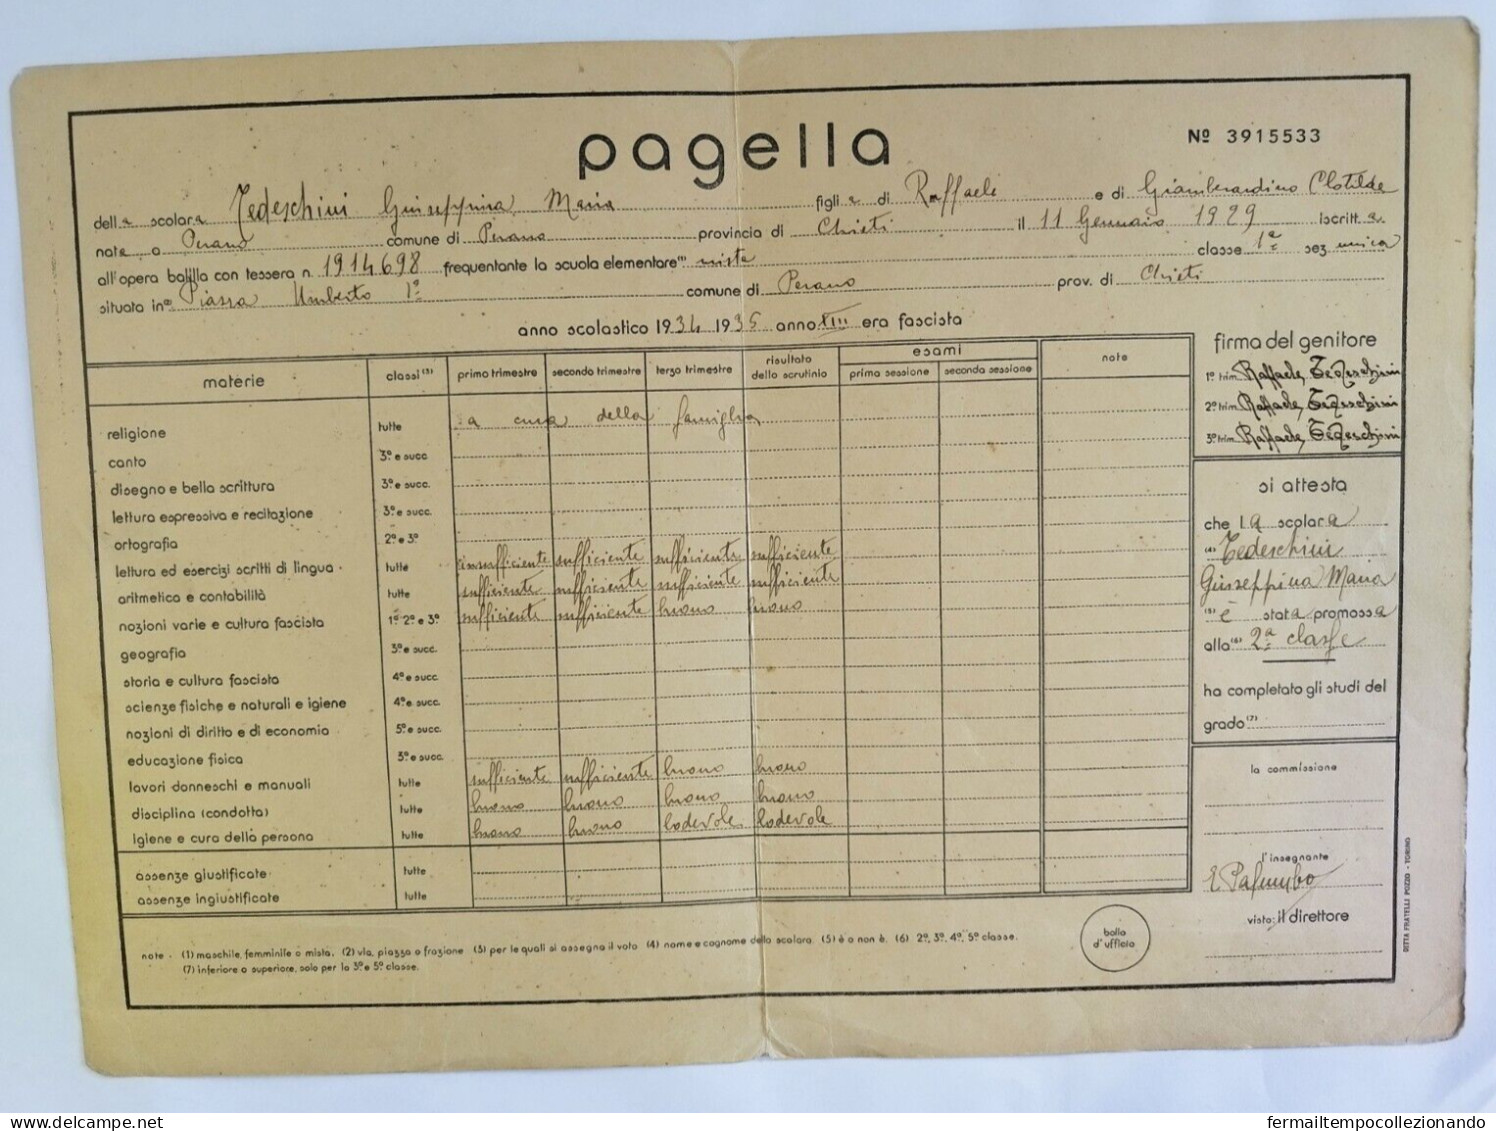 pagella
Nº 3915533
della scolara Tedeschini Giuseppina Maria figlia di Raffaele e di Giamberardino Clotilde
nata a Perano comune di Perano provincia di Chieti il 11 Gennaio 1929 iscritta
all'opera balilla con tessera n. 1914698 frequentante la scuola elementare⁽¹⁾ mista classe 1ª sez. unica
situata in⁽²⁾ Piazza Umberto 1º comune di Perano prov. di Chieti
anno scolastico 1934 1935 anno XIII era fascista
materie classi⁽³⁾ primo trimestre secondo trimestre terzo trimestre risultato dello scrutinio esami prima sessione seconda sessione note
religione tutte a cura della famiglia
canto 3ª e succ.
disegno e bella scrittura 3ª e succ.
lettura espressiva e recitazione 3ª e succ.
ortografia 2ª e 3ª
lettura ed esercizi scritti di lingua tutte insufficiente sufficiente sufficiente sufficiente
aritmetica e contabilità tutte sufficiente sufficiente sufficiente sufficiente
nozioni varie e cultura fascista 1ª 2ª e 3ª sufficiente sufficiente buono buono
geografia 3ª e succ.
storia e cultura fascista 4ª e succ.
scienze fisiche e naturali e igiene 4ª e succ.
nozioni di diritto e di economia 5ª e succ.
educazione fisica 3ª e succ.
lavori donneschi e manuali tutte sufficiente sufficiente buono buono
disciplina (condotta) tutte buono buono buono buono
igiene e cura della persona tutte buono buono lodevole lodevole
assenze giustificate tutte
assenze ingiustificate tutte
firma del genitore
1º trim. Raffaele Tedeschini
2º trim. Raffaele Tedeschini
3º trim. Raffaele Tedeschini
si attesta
che la scolara
⁽⁴⁾ Tedeschini
Giuseppina Maria
⁽⁵⁾ è stata promossa
alla⁽⁶⁾ 2ª classe
ha completato gli studi del
grado⁽⁷⁾
la commissione
l'insegnante
E. Palumbo
visto: il direttore
bollo
d'ufficio
note - (1) maschile, femminile o mista. (2) via, piazza o frazione (3) per le quali si assegna il voto (4) nome e cognome della scolara. (5) è o non è. (6) 2ª, 3ª, 4ª, 5ª classe.
(7) inferiore o superiore, solo per la 3ª e 5ª classe.
DITTA FRATELLI POZZO - TORINO
fermailtempocollezionando